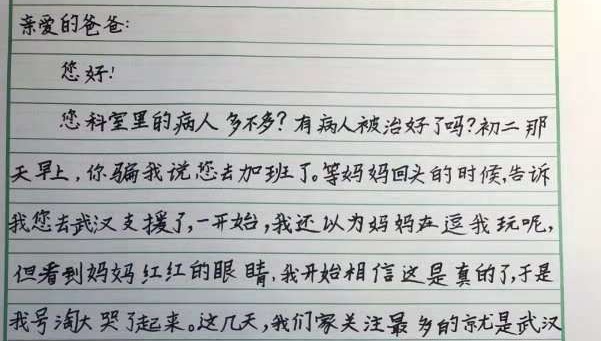 亲爱的爸爸:
您好!
您科室里的病人多不多?有病人被治好了吗?初二那
天早上,你骗我说您去加班了。等妈妈回头的时候,告诉
我您去武汉支援了,一开始,我还以为妈妈在逗我玩呢,
但看到妈妈红红的眼睛,我开始相信这是真的了,于是
我号淘大哭了起来。这几天,我们家关注最多的就是武汉